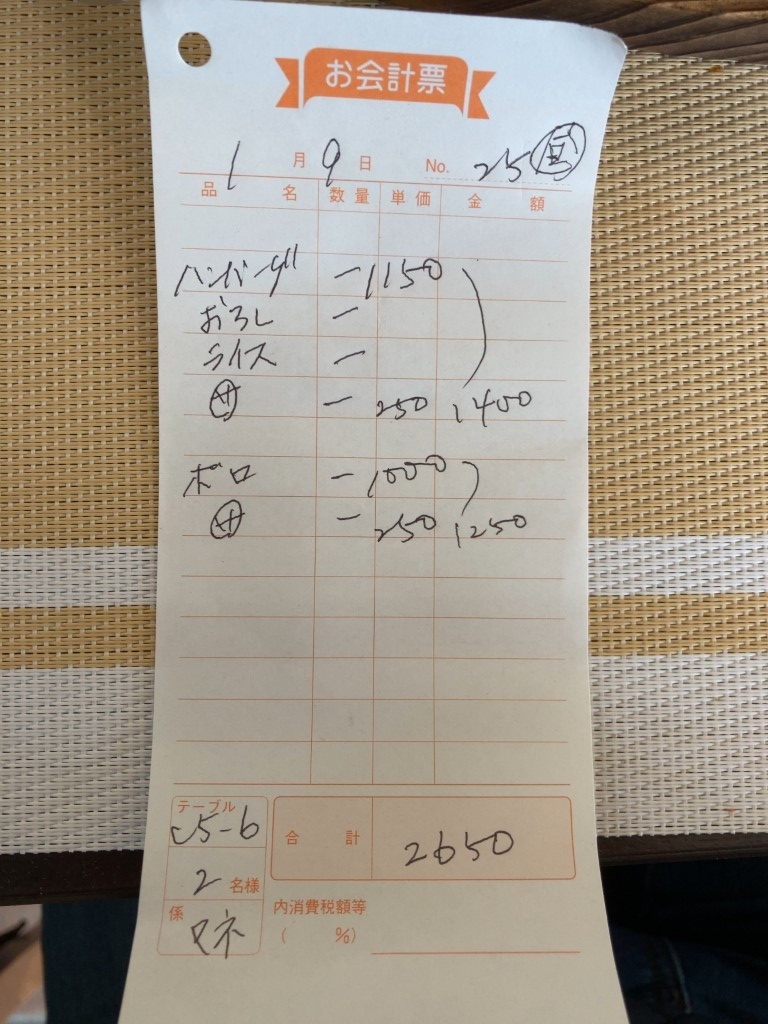 お会計票
1月9日 No. 25
品名 数量 単価 金額
ハンバーグ 一 1150
おろし 一
ライス 一
一 250 1400
ボロ 一 1000
一 250 1250
テーブル C5-6
合計 2650
2名様
係 マネ
内消費税額等
( %)